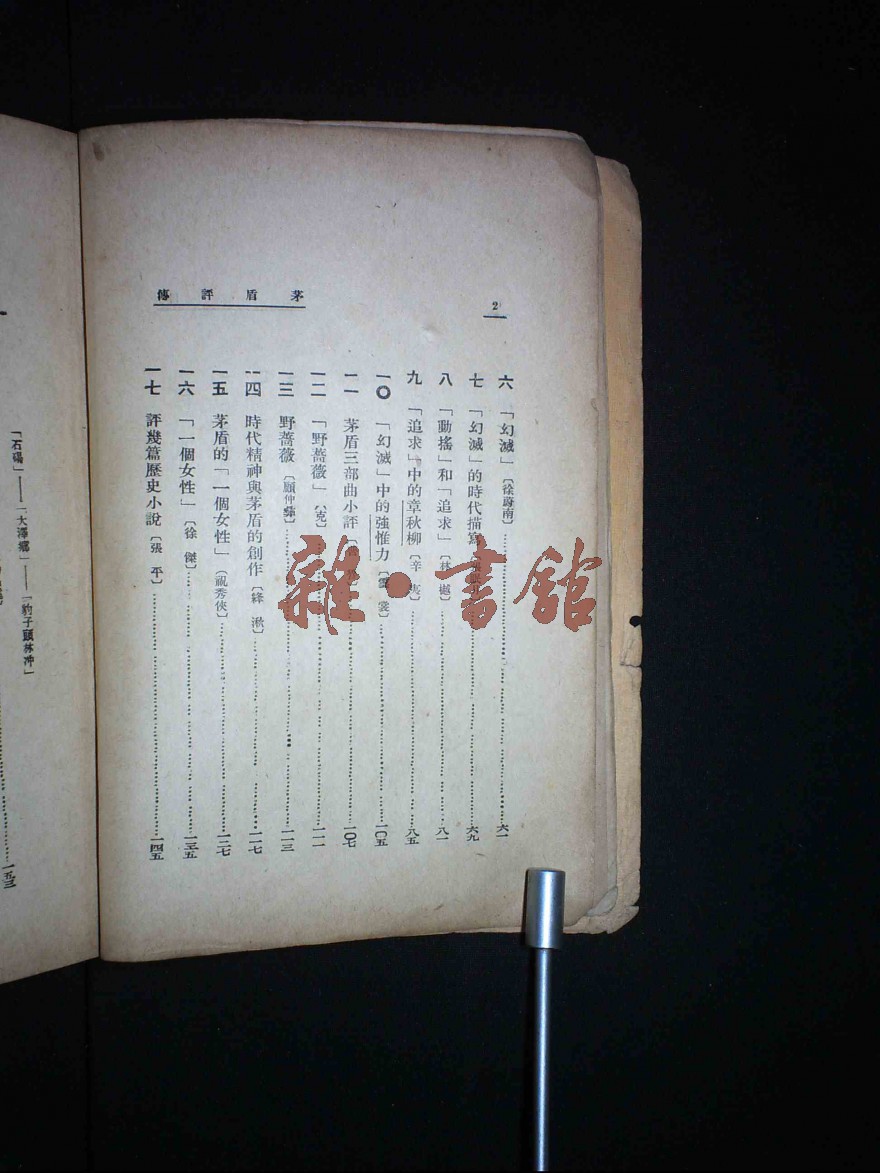 2
茅盾評傳
六 「幻滅」〔徐蔚南〕 六一
七 「幻滅」的時代描寫 六九
八 「動搖」和「追求」〔林樾〕 八一
九 「追求」中的章秋柳〔辛夷〕 八五
一〇 「幻滅」中的強惟力 一〇五
一一 茅盾三部曲小評 一〇七
一二 「野薔薇」〔克〕 一一一
一三 野薔薇〔顧仲彝〕 一一三
一四 時代精神與茅盾的創作〔絳湫〕 一一七
一五 茅盾的「一個女性」〔祝秀俠〕 一二七
一六 「一個女性」〔徐傑〕 一三五
一七 評幾篇歷史小說〔張平〕 一四五
「石碣」——「大澤鄉」——「豹子頭林冲」
一五三
雜·書館